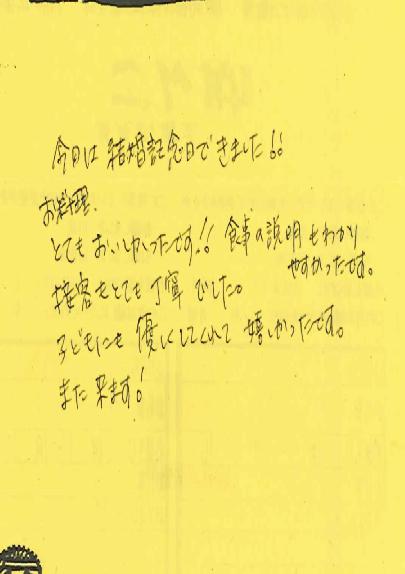 今日は結婚記念日できました!!
お料理、
とてもおいしかったです!! 食事の説明もわかり
やすかったです。
接客もとても丁寧でした。
子どもにも優しくしてくれて嬉しかったです。
また来ます!